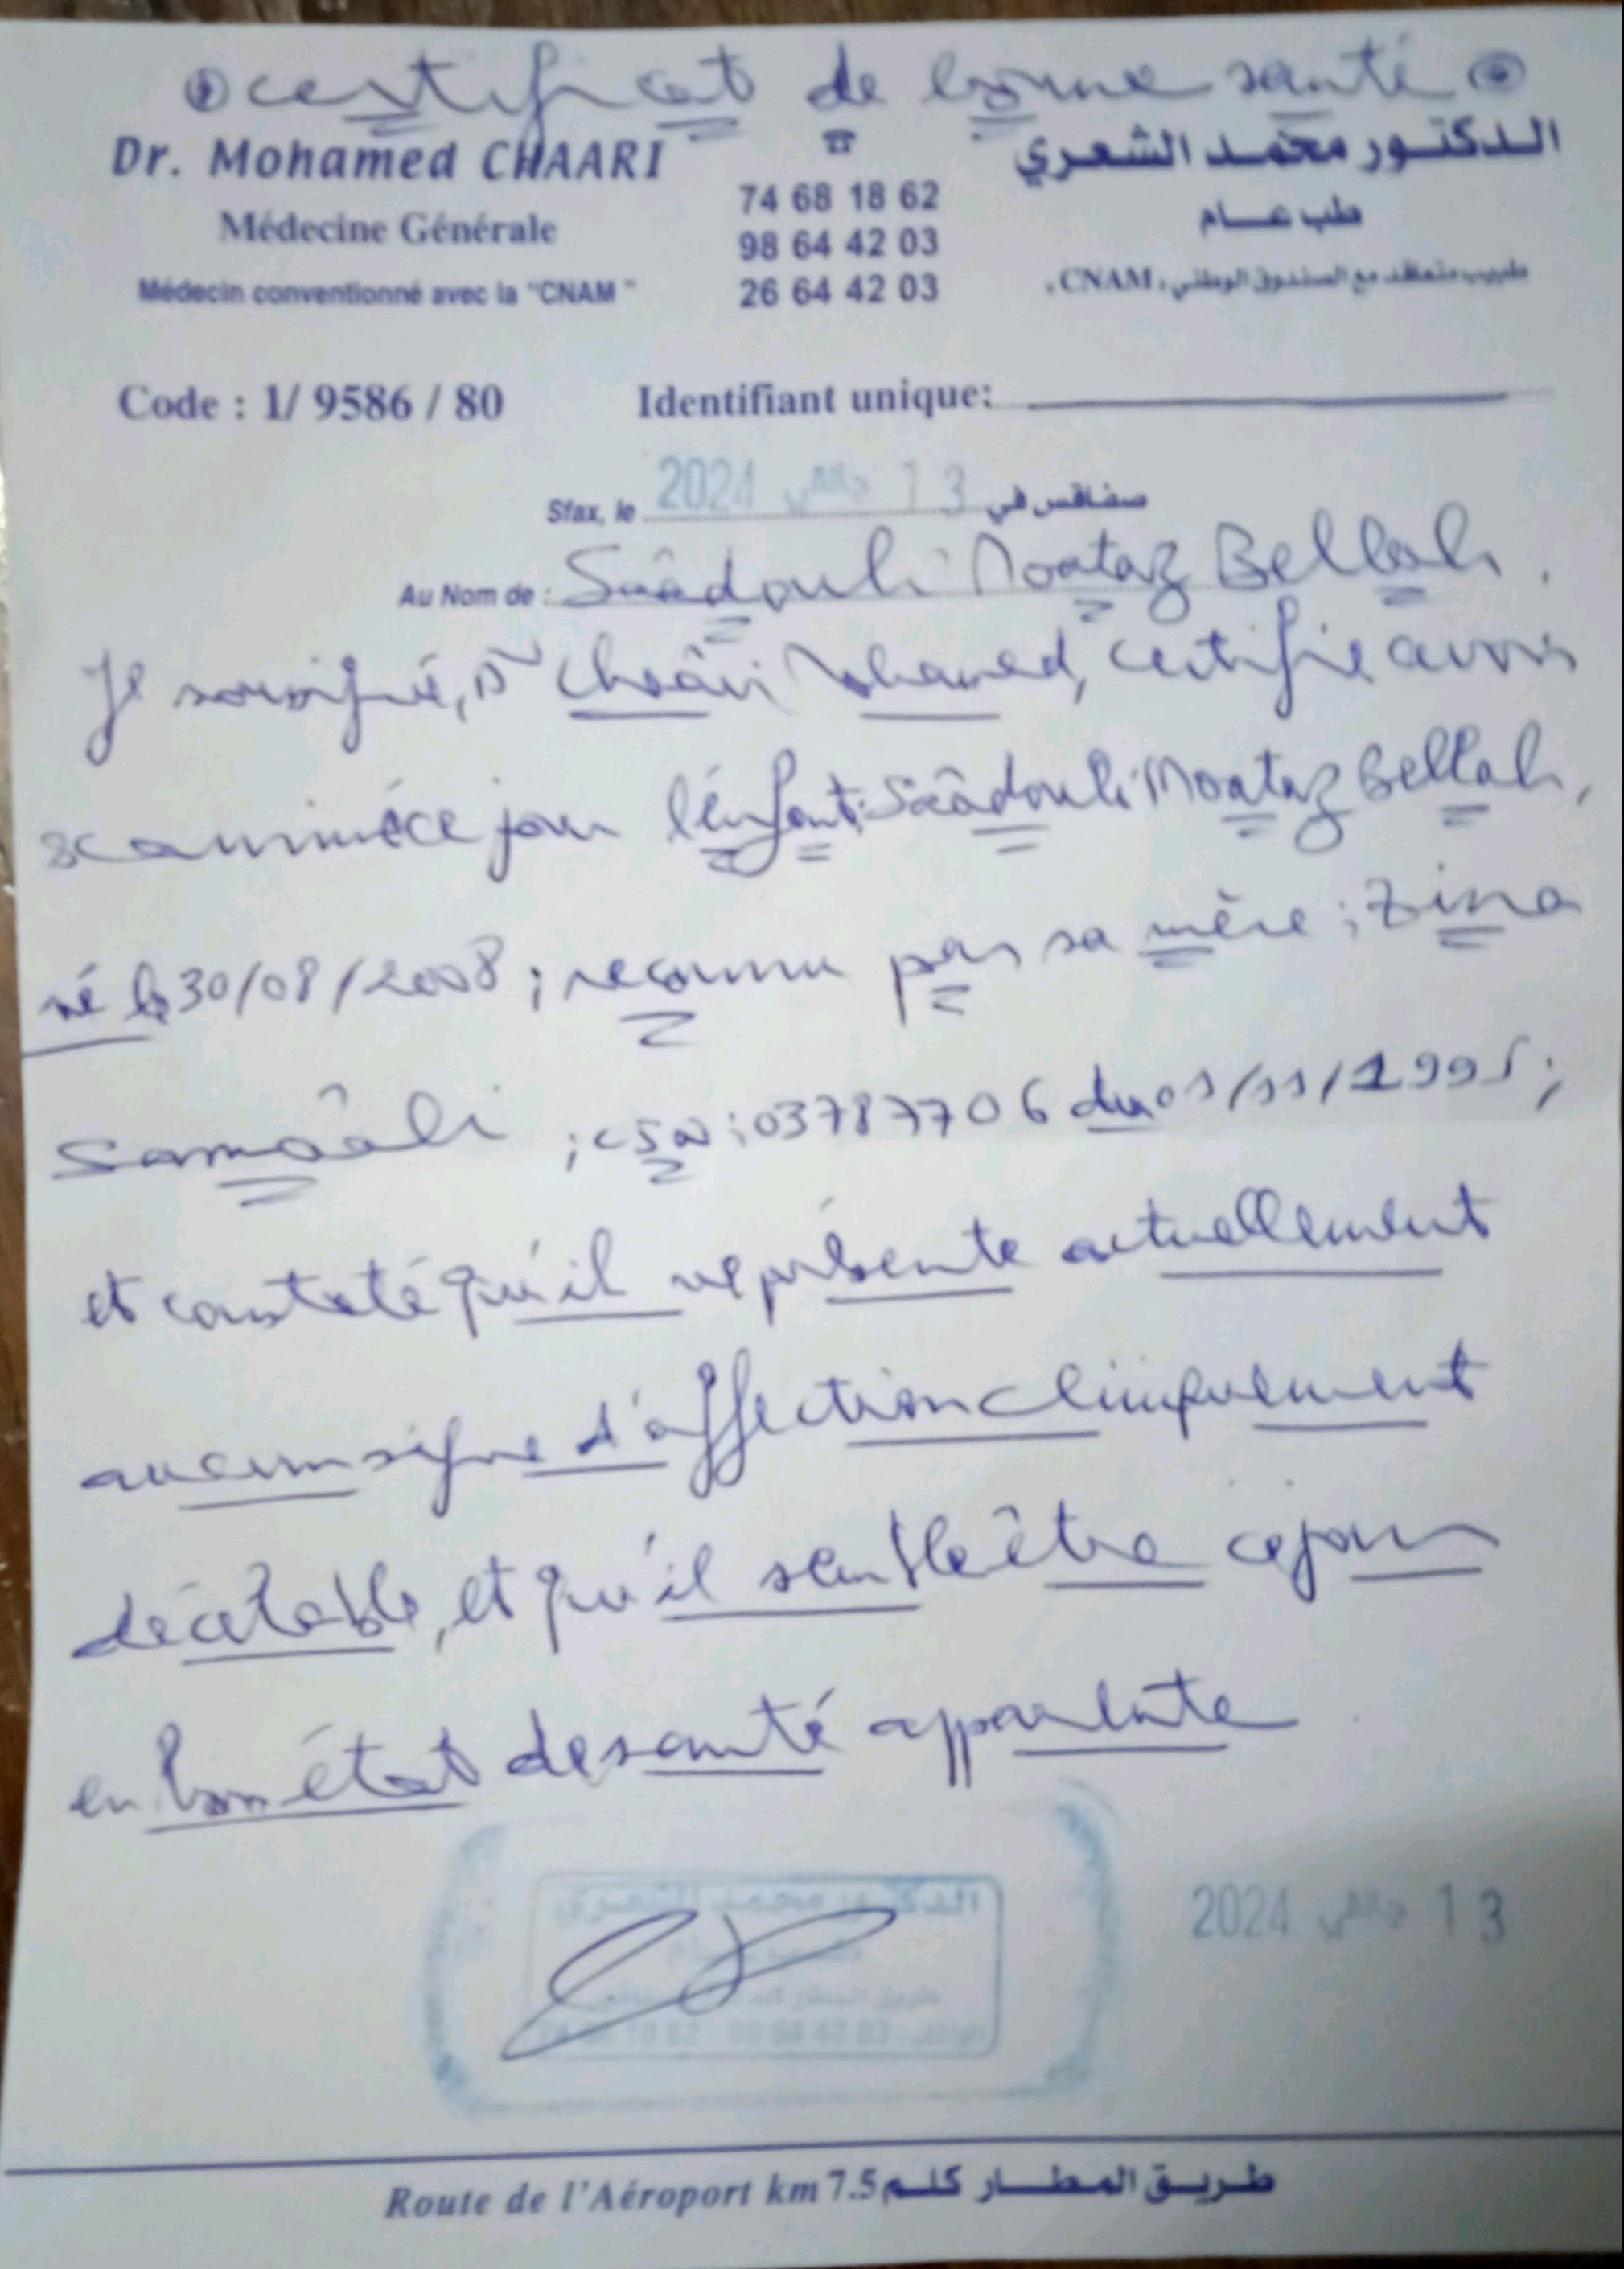 certificat de bonne santé
Dr. Mohamed CHAARI
Médecine Générale
Médecin conventionné avec la "CNAM"
☎
74 68 18 62
98 64 42 03
26 64 42 03
الدكتور محمد الشعري
طب عام
طبيب متعاقد مع الصندوق الوطني، CNAM،
Code : 1/ 9586 / 80
Identifiant unique:
Sfax, le 2024 جانفي 13 صفاقس في
Au Nom de : Saâdouli Moataz Bellah.
Je soussigné, Dr Chaâri Mohamed, certifie avoir
examiné ce jour l'enfant: Saâdouli Moataz Bellah,
né le 30/08/2008 ; reconnu par sa mère ; Zina
Samâali ; CIN : 03787706 du 01/11/1995 ;
et constaté qu'il ne présente actuellement
aucun signe d'affection cliniquement
décelable, et qu'il semble être ce jour
en bon état de santé apparente
الدكتور محمد الشعري
2024 جانفي 13
Route de l'Aéroport km 7.5 طريق المطار كلم